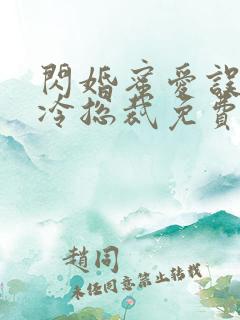 閃婚蜜愛誤
冷總裁免費
趙同
未经同意禁止转载